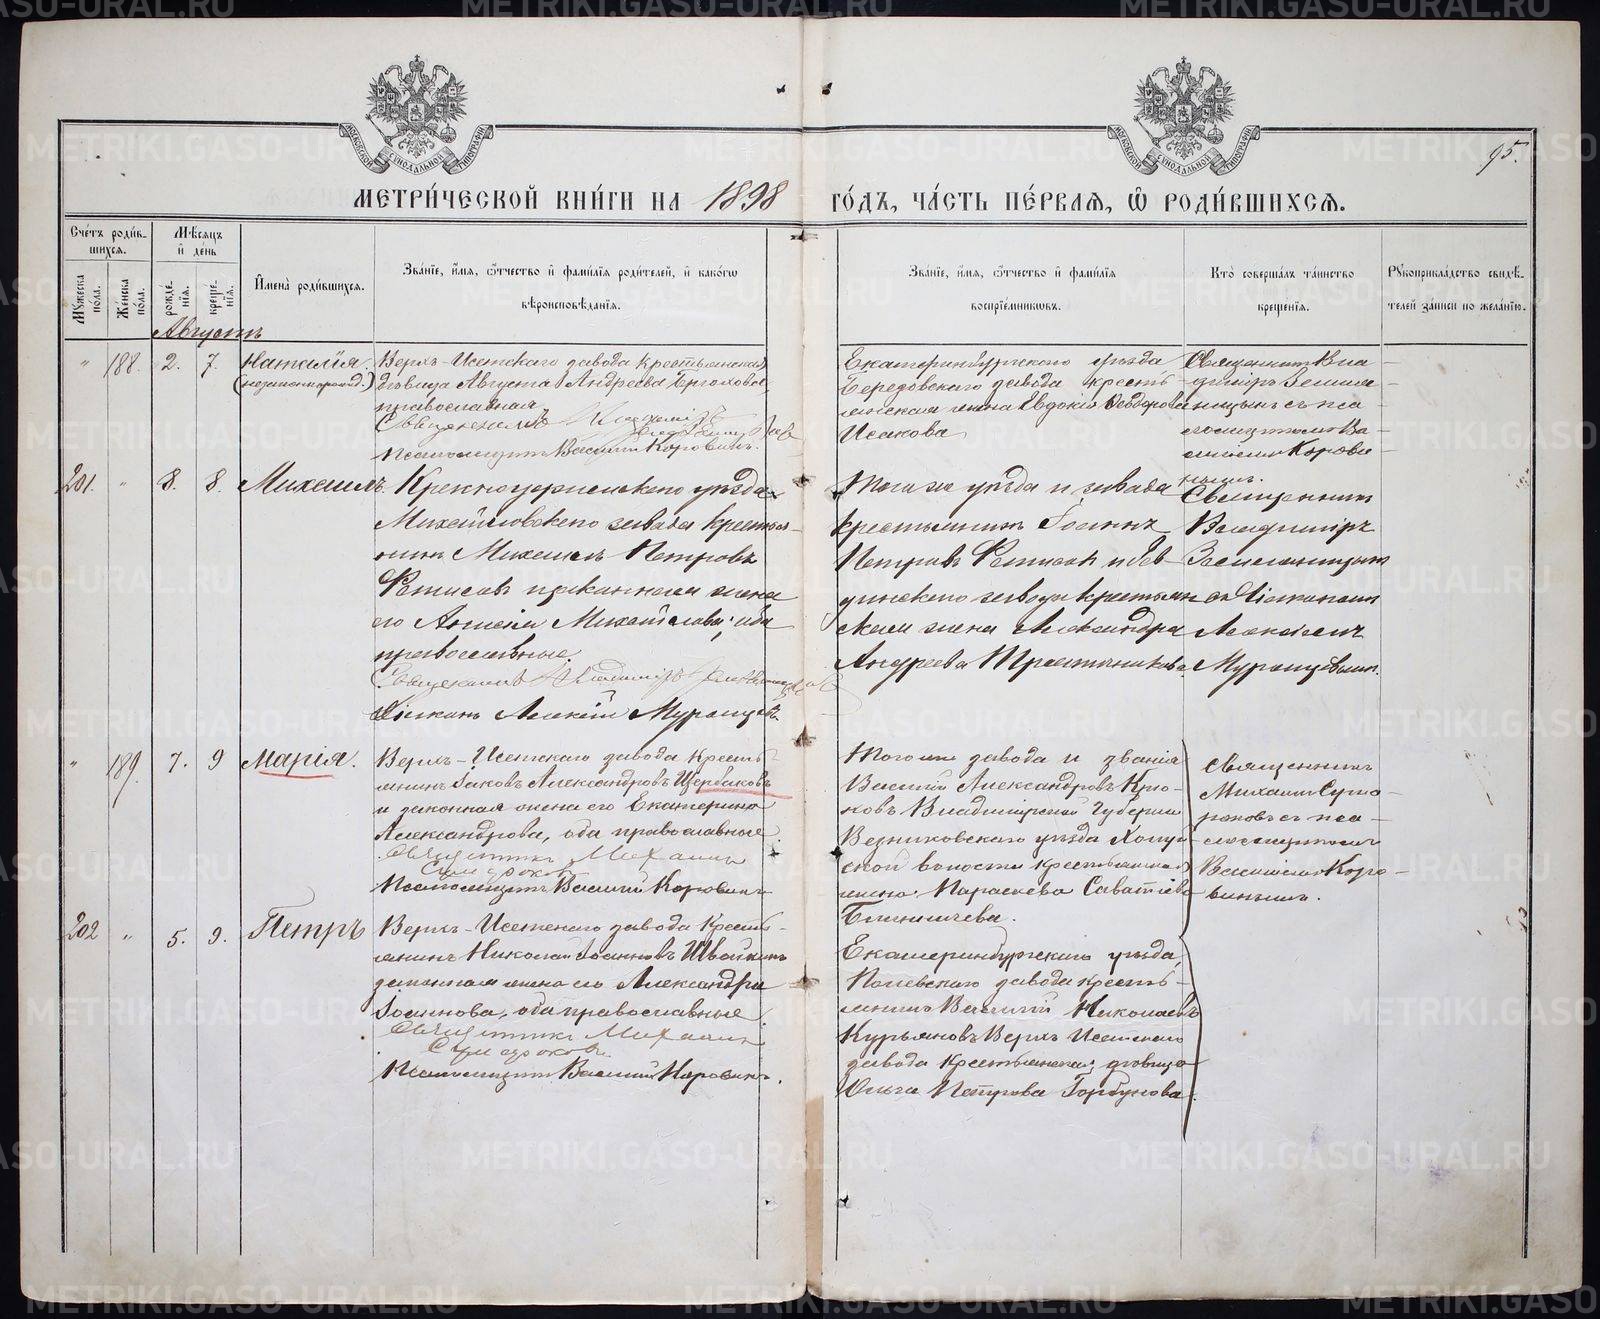 МЕТРИЧЕСКОЙ КНИГИ НА 1898 ГОДЪ, ЧАСТЬ ПЕРВАЯ, Ѡ РОДИВШИХСЯ.
95.
Счетъ родив-
шихся.
Мужеска пола.
Женска пола.
Мѣсяцъ и день
рожденія.
крещенія.
Имена родившихся.
Званіе, имя, отчество и фамилія родителей, и какого
вѣроисповѣданія.
Званіе, имя, отчество и фамилія
воспріемниковъ.
Кто совершалъ таинство
крещенія.
Рукоприкладство свидѣ-
телей записи по желанію.
Августъ
" 188. 2. 7. Наталія.
(незаконнорожд.)
Верхъ-Исетскаго завода крестьянская
дѣвица Августа Андреева
православная
Священникъ
Псаломщикъ Василій Коровинъ.
Екатеринбургскаго уѣзда
завода кресть-
янская жена Евдокія Ѳеодорова
Исакова
Священникъ Вла-
диміръ Земля-
ницынъ съ пса-
ломщикомъ Ва-
силіемъ Корови-
нымъ.
201. " 8. 8. Михаилъ.
Красноуфимскаго уѣзда
Михайловскаго завода крестья-
нинъ Михаилъ Петровъ
и законная жена
его Михайлова, оба
православные.
Священникъ Владиміръ Земляницынъ
Діаконъ Алексій
Того же уѣзда и завода
крестьянинъ Іоаннъ
Петровъ и Рев-
динскаго завода крестьян-
ская жена Александра
Андреева
Священникъ
Владиміръ
Земляницынъ
съ Діакономъ
Алексіемъ
" 189. 7. 9 Марія.
Верхъ-Исетскаго завода кресть-
янинъ Іаковъ Александровъ Щербаковъ
и законная жена его Екатерина
Александрова, оба православные.
Священникъ Михаилъ
Сумароковъ
Псаломщикъ Василій Коровинъ
Того же завода и званія
Василій Александровъ Крю-
ковъ и Владимірской Губерніи
Вязниковскаго уѣзда Холуй-
ской волости крестьянская
жена Параскева Саватіева
Священникъ
Михаилъ Сума-
роковъ съ пса-
ломщикомъ
Василіемъ Коро-
винымъ.
202 " 5. 9. Петръ
Верхъ-Исетскаго завода кресть-
янинъ Николай Іоанновъ
законная жена его Александра
Іоаннова, оба православные.
Священникъ Михаилъ
Сумароковъ.
Псаломщикъ Василій Коровинъ.
Екатеринбургскаго уѣзда,
Полевскаго завода кресть-
янинъ Василій Николаевъ
Курьяновъ Верхъ Исетскаго
завода крестьянская дѣвица
Ольга Петрова Горбунова.
METRIKI.GASO-URAL.RU